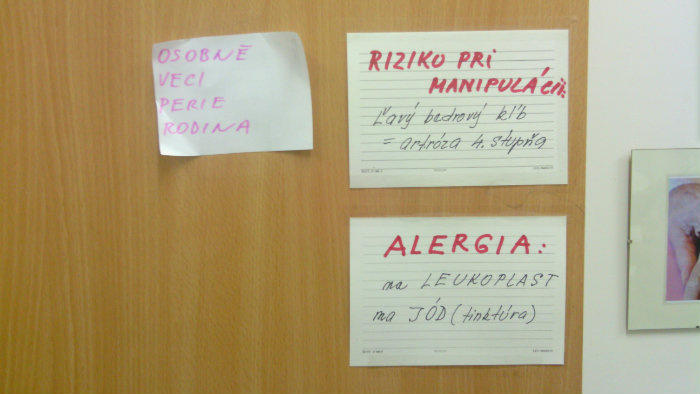 OSOBNĚ
VECI
PERIE
RODINA
RIZIKO PRI
MANIPULÁCII:
Ľavý bedrový kĺb
= artróza 4. stupňa
ALERGIA:
na LEUKOPLAST
na JÓD (tinktúra)